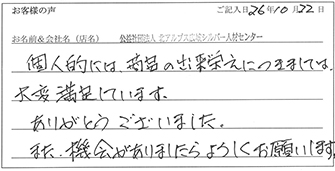 お客様の声
ご記入日 26年10月22日
お名前&会社名（店名） 公益社団法人 北アルプス広域シルバー人材センター
個人的には、商品の出来栄えにつきましては、
大変満足しています。
ありがとうございました。
また、機会がありましたらよろしくお願いします。